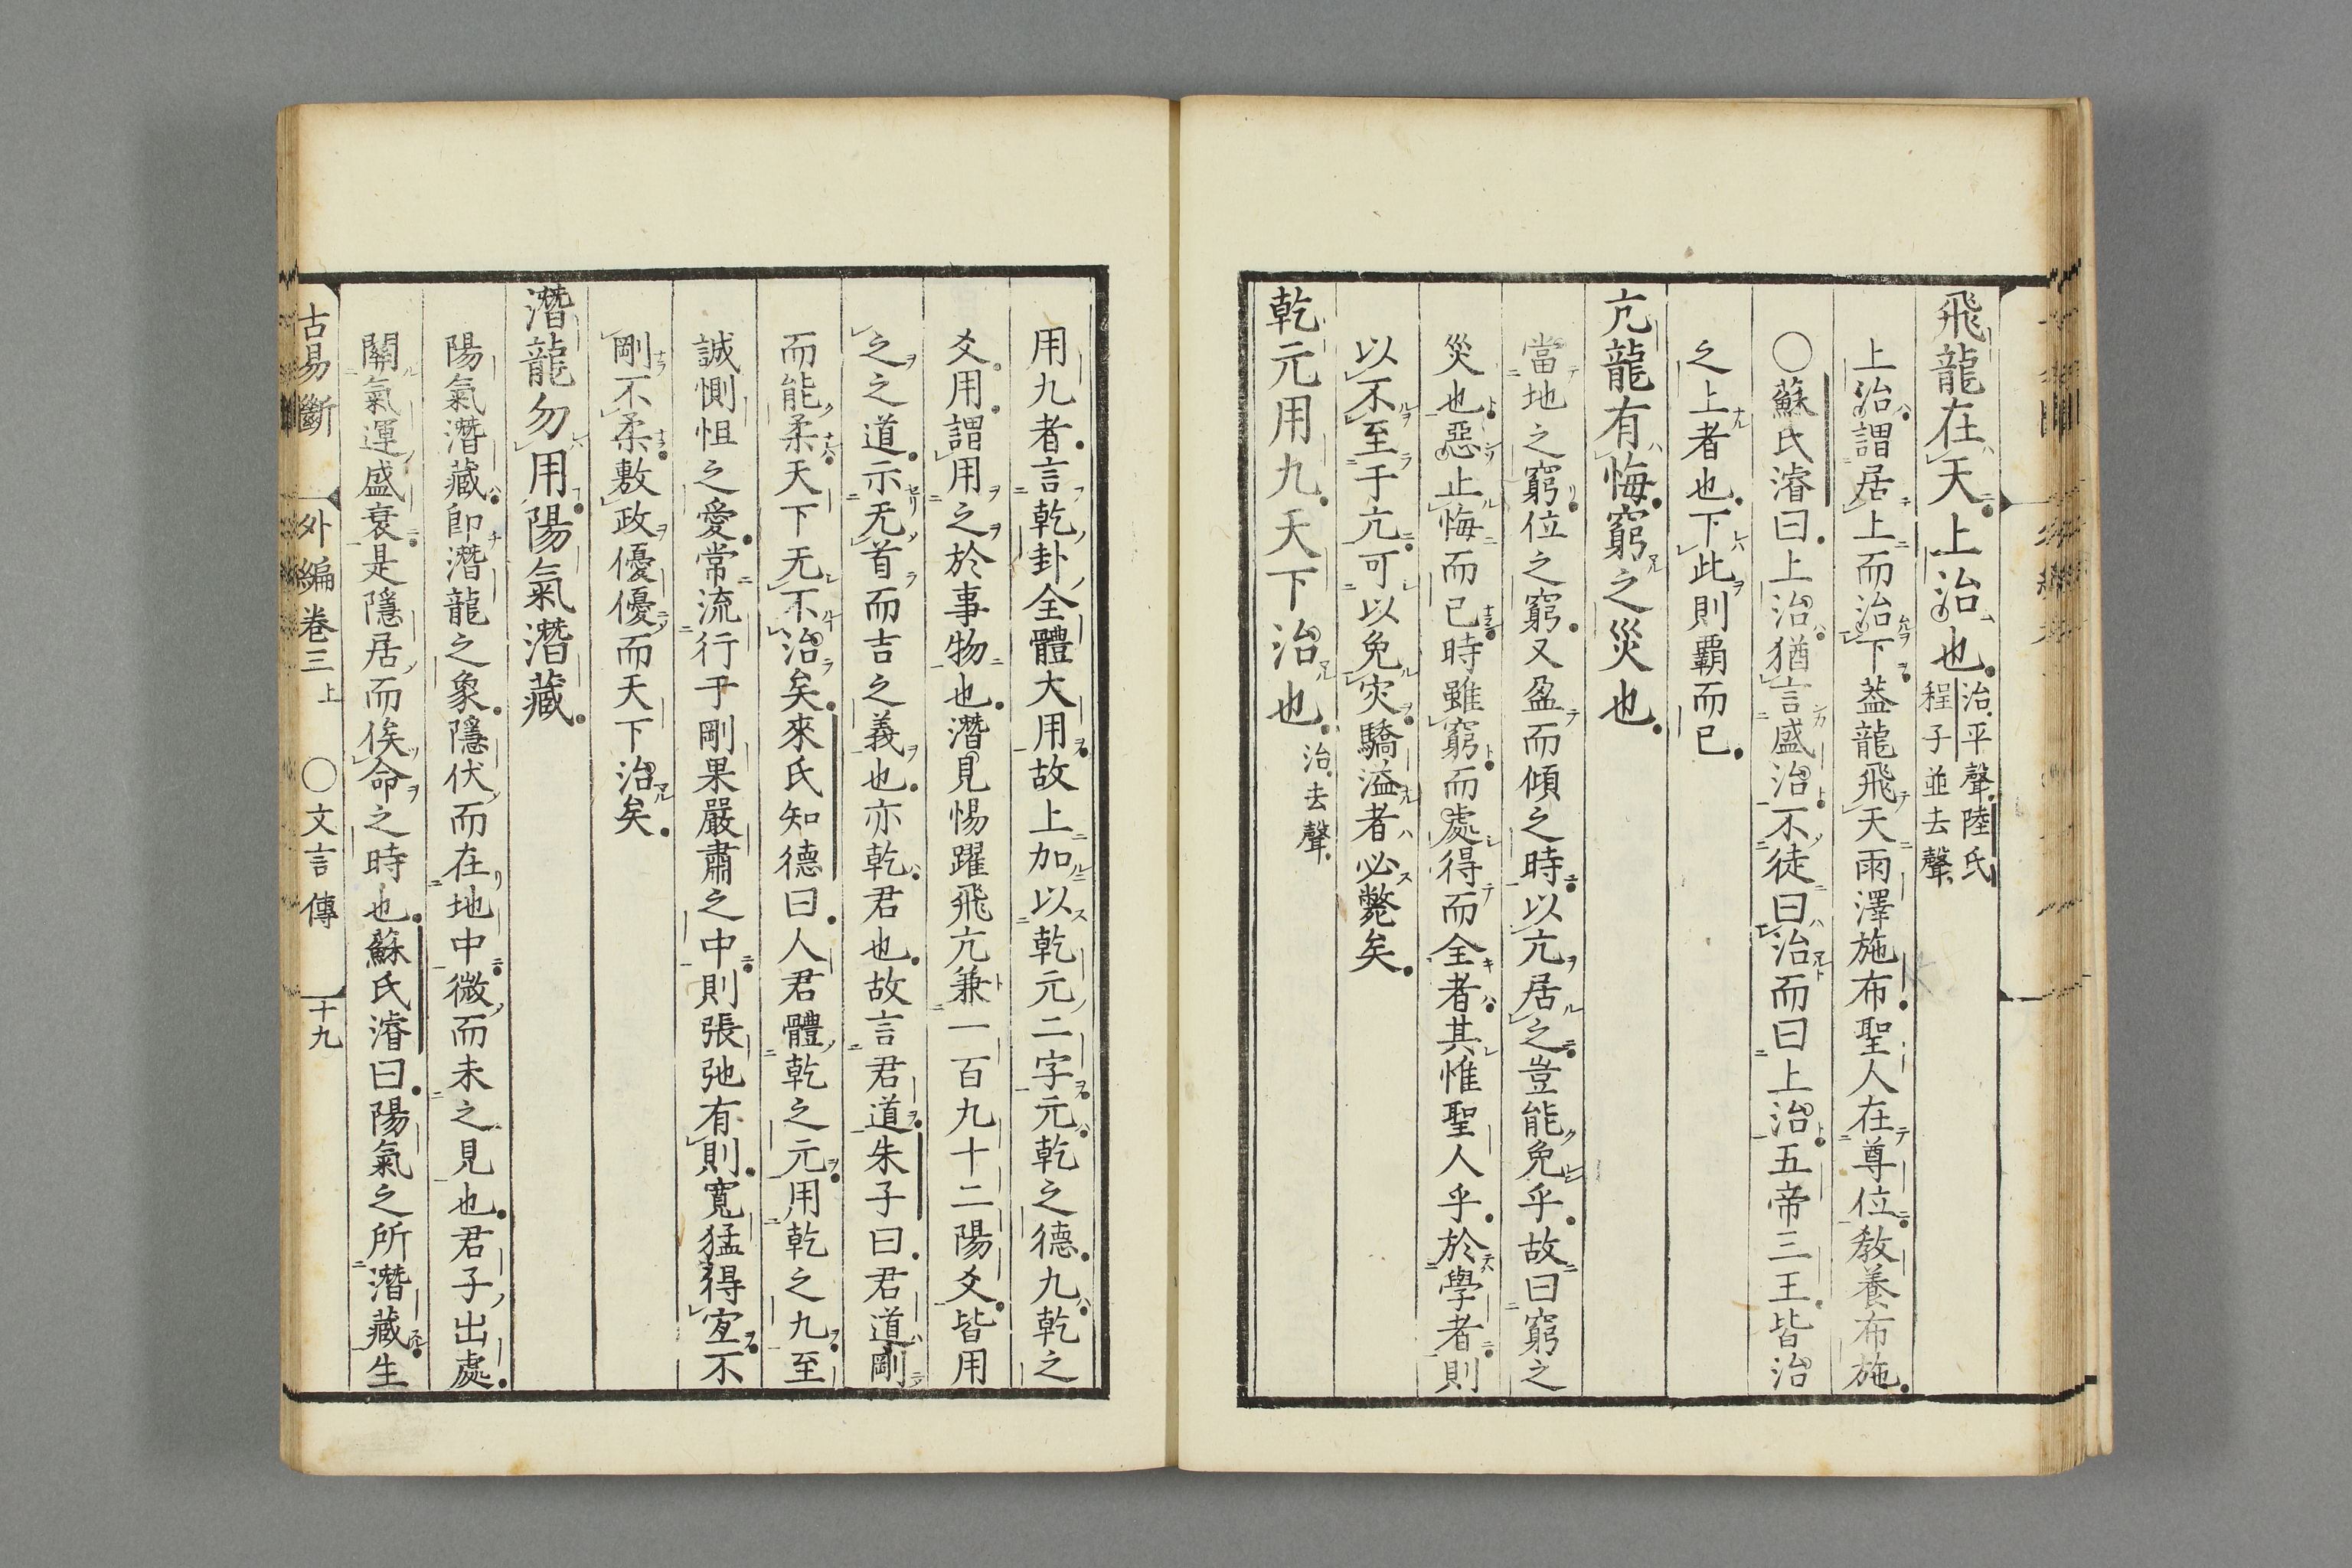 飛龍在天。上治也。治平聲。陸氏程子並去聲。
上治謂居上而治下。蓋龍飛天雨澤施布。聖人在尊位。教養布施。
○蘇氏濬曰。上治猶言盛治。不徒曰治而曰上治。五帝三王。皆治
之上者也。下此則覇而已。
亢龍有悔。窮之災也。
當地之窮。位之窮。又盈而傾之時。以亢居之。豈能免乎。故曰窮之
災也。惡止悔而已。時雖窮。而處得而全者。其惟聖人乎。於學者。則
以不至于亢。可以免灾。驕溢者必斃矣。
乾元用九。天下治也。治去聲。
用九者。言乾卦全體大用。故上加以乾元二字。元乾之德。九乾之
爻。用謂用之於事物也。潛見惕躍飛亢兼一百九十二陽爻。皆用
之之道。示无首而吉之義也。亦乾君也。故言君道。朱子曰。君道剛
而能柔。天下无不治矣。來氏知德曰。人君體乾之元。用乾之九。至
誠惻怛之愛。常流行于剛果嚴肅之中。則張弛有則。寬猛得宜。不
剛不柔。敷政優優而天下治矣。
潛龍勿用。陽氣潛藏。
陽氣潛藏。卽潛龍之象。隱伏而在地中。微而未之見也。君子出處。
關氣運盛衰。是隱居而俟命之時也。蘇氏濬曰。陽氣之所潛藏。生
古易斷　外編卷三上　○文言傳　十九